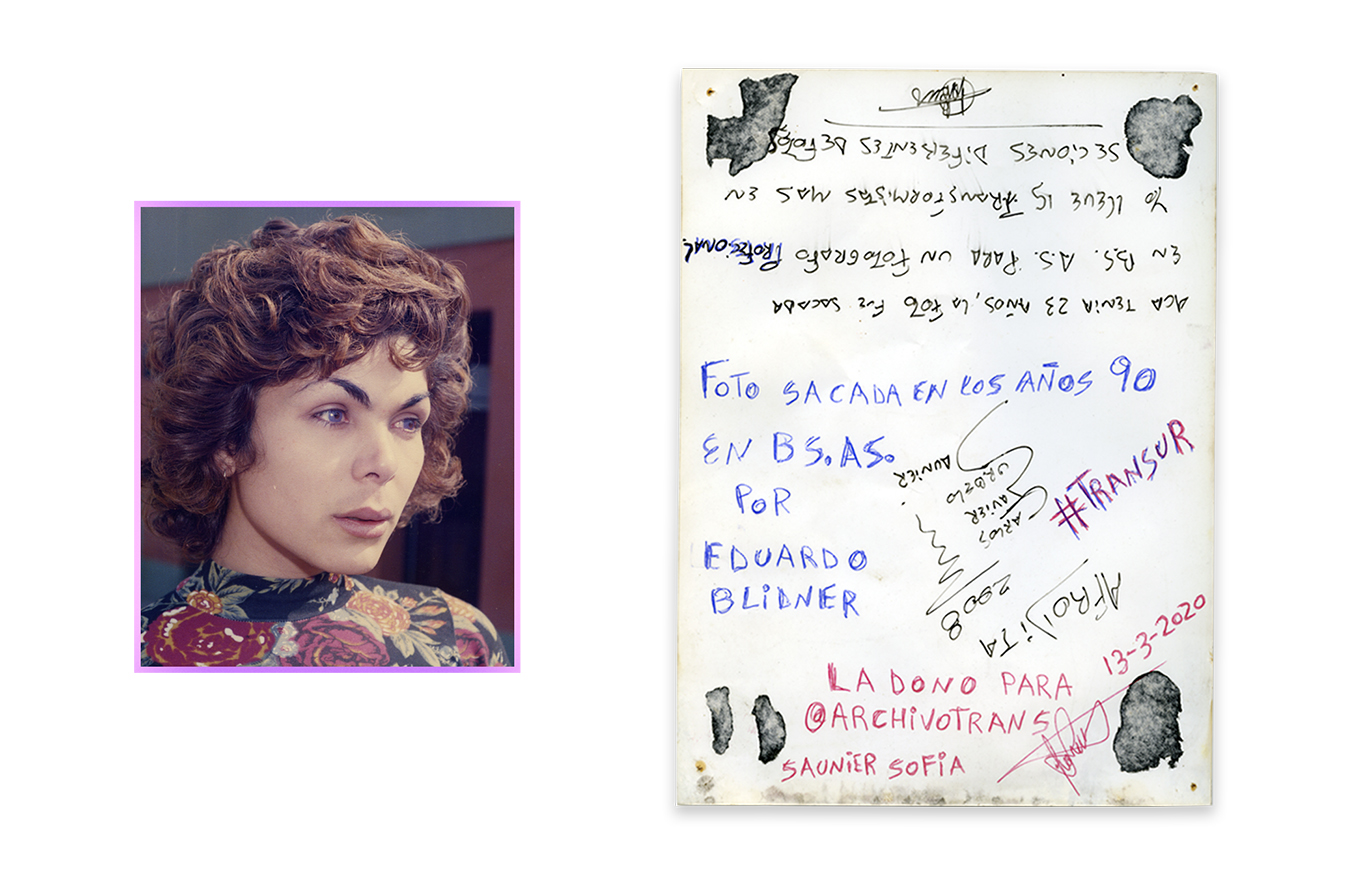 ACA TENIA 23 AÑOS, LA FOTO FUE SACADA
EN B.S. A.S. PARA UN FOTOGRAFO PROFESIONAL
YO LLEVE 15 TRANSFORMISTAS MAS EN
SECIONES DIFERENTES DE FOTOS
FOTO SACADA EN LOS AÑOS 90
EN BS.AS.
POR
EDUARDO
BLIDNER
CARLOS
JAVIER
SAUNIER
2008
#TRANSUR
AFRODITA
13-3-2020
LA DONO PARA
@ARCHIVOTRANS
SAUNIER SOFIA